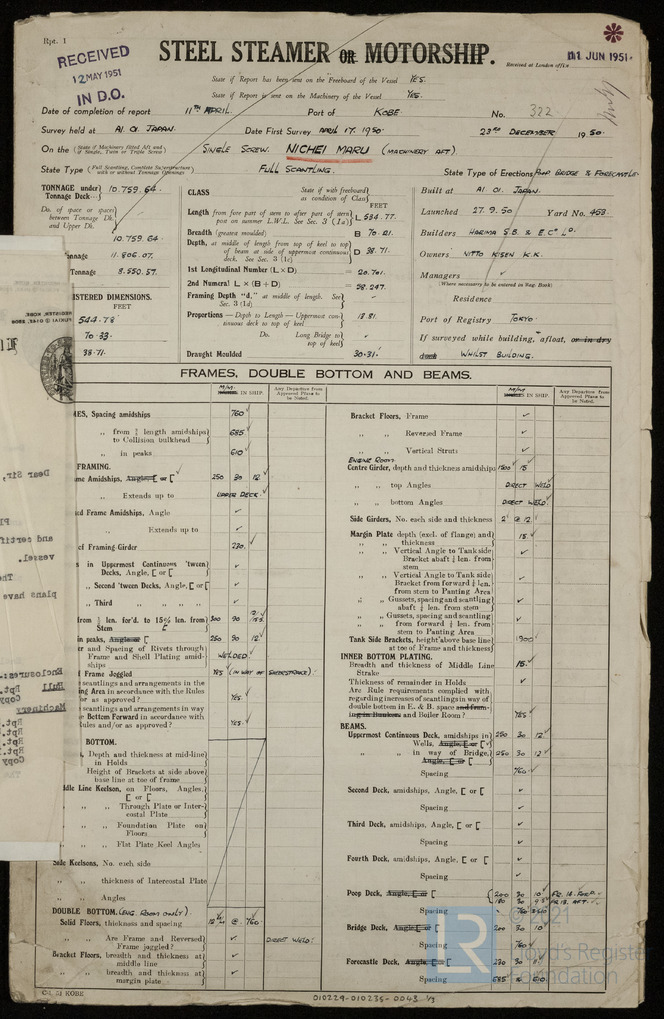 Rpt. 1
RECEIVED
12 MAY 1951
IN D.O.
STEEL STEAMER OR MOTORSHIP.
Received at London office
11 JUN 1951
State if Report has been sent on the Freeboard of the Vessel YES.
State if Report is sent on the Machinery of the Vessel YES.
Date of completion of report 11TH APRIL. Port of KOBE No. 322
Survey held at AI OI. JAPAN. Date First Survey APRIL 17. 1950 23RD DECEMBER 1950.
On the (State if Machinery Fitted Aft and if Single, Twin or Triple Screw) SINGLE SCREW. NICHEI MARU (MACHINERY AFT).
State Type (Full Scantling, Complete Superstructure with or without Tonnage Openings) FULL SCANTLING. State Type of Erections POOP BRIDGE & FORECASTLE
TONNAGE under Tonnage Deck 10.759.64.
Do. of space or spaces between Tonnage Dk. and Upper Dk.
10.759.64.
onnage 11.806.07.
Tonnage 8.550.57.
ISTERED DIMENSIONS.
FEET
544.78
70.33
38.71.
CLASS State if with freeboard as condition of Class
FEET
Length from fore part of stem to after part of stern post on summer L.W.L. See Sec. 3 (1a) L 534.77.
Breadth (greatest moulded) B 70.21.
Depth, at middle of length from top of keel to top of beam at side of uppermost continuous deck. See Sec. 3 (1c) D 38.71.
1st Longitudinal Number (L × D) = 20.701.
2nd Numeral L × (B + D) = 58.247.
Framing Depth "d," at middle of length. See Sec. 3 (1d)
Proportions — Depth to Length — Uppermost continuous deck to top of keel 13.81
Do. Long Bridge to top of keel
Draught Moulded 30.31.
Built at AI OI. JAPAN.
Launched 27.9.50 Yard No. 453.
Builders HARIMA S.B. & E. Co Ld.
Owners NITTO KISEN K.K.
Managers
(Where necessary to be entered in Reg. Book)
Residence
Port of Registry TOKYO.
If surveyed while building, afloat, or in dry dock WHILST BUILDING.
FRAMES, DOUBLE BOTTOM AND BEAMS.
M/M. IN SHIP.
Any Departure from Approved Plans to be Noted.
MES, Spacing amidships 760
,, from ⅕ length amidships to Collision bulkhead 685
,, in peaks 610
FRAMING.
me Amidships, Angle, [ or [ 250 90 12
,, Extends up to UPPER DECK.
ed Frame Amidships, Angle
,, Extends up to
of Framing Girder 230.
s in Uppermost Continuous 'tween Decks, Angle, [ or [
,, Second 'tween Decks, Angle, [ or [
,, Third ,, ,, ,, ,,
from ⅕ len. for'd. to 15% len. from Stem 300 90
in peaks, Angle or [ 250 90 12
er and Spacing of Rivets through Frame and Shell Plating amidships WELDED
Frame Joggled YES (IN WAY OF SIDESTRAKE).
scantlings and arrangements in the ing Area in accordance with the Rules or as approved? YES.
scantlings and arrangements in way Bottom Forward in accordance with Rules and/or as approved? YES.
BOTTOM.
, Depth and thickness at mid-line in Holds
Height of Brackets at side above base line at toe of frame
ddle Line Keelson, on Floors, Angles, [ or [
,, ,, Through Plate or Intercostal Plate
,, ,, Foundation Plate on Floors
,, ,, Flat Plate Keel Angles
Side Keelsons, No. each side
,, ,, thickness of Intercostal Plate
,, ,, Angles
DOUBLE BOTTOM. (ENG. ROOM ONLY).
Solid Floors, thickness and spacing @ 760
,, ,, Are Frame and Reversed Frame joggled? DIRECT WELD.
Bracket Floors, breadth and thickness at middle
,, ,, breadth and thickness at margin plate
M/M. IN SHIP.
Any Departure from Approved Plans to be Noted.
Bracket Floors, Frame
,, ,, Reversed Frame
,, ,, Vertical Struts
ENGINE ROOM
Centre Girder, depth and thickness amidships 1500 15
,, ,, top Angles DIRECT WELD
,, ,, bottom Angles DIRECT WELD.
Side Girders, No. each side and thickness 2 @ 12.
Margin Plate depth (excl. of flange) and thickness 15.
,, ,, Vertical Angle to Tank side Bracket abaft ¼ len. from stem
,, ,, Vertical Angle to Tank side Bracket from forward ¼ len. from stem to Panting Area
,, ,, Gussets, spacing and scantling abaft ¼ len. from stem
,, ,, Gussets, spacing and scantling from forward ¼ len. from stem to Panting Area
Tank Side Brackets, height above base line at toe of Frame and thickness 1900
INNER BOTTOM PLATING.
Breadth and thickness of Middle Line Strake 15.
Thickness of remainder in Holds
Are Rule requirements complied with regarding increases of scantlings in way of double bottom in E. & B. space and framing in Bunkers and Boiler Room? YES
BEAMS.
Uppermost Continuous Deck, amidships in Wells, Angle, [ or [ 250 90 12
,, ,, in way of Bridge, Angle, [ or [ 250 90 12
Spacing 760
Second Deck, amidships, Angle, [ or [
Spacing
Third Deck, amidships, Angle, [ or [
Spacing
Fourth Deck, amidships, Angle, [ or [
Spacing
Poop Deck, Angle, [ or [ 200 90 10 FR. 13. FOR'D
180 90 9.5 FR 13. AFT.
Spacing 760
Bridge Deck, Angle, [ or [ 200 90 10
Spacing 760
Forecastle Deck, Angle, [ or [ 230 90 11
Spacing 685 & 610
© 2021
Lloyd's Register
Foundation
LR
010229-010235-0043 1/3
Dear Sir,
and certifi
vessel.
plans have
Enclosures:
Hull Rpt.
Copy
Machinery
Rpt.
Rpt.
Rpt.
Copy